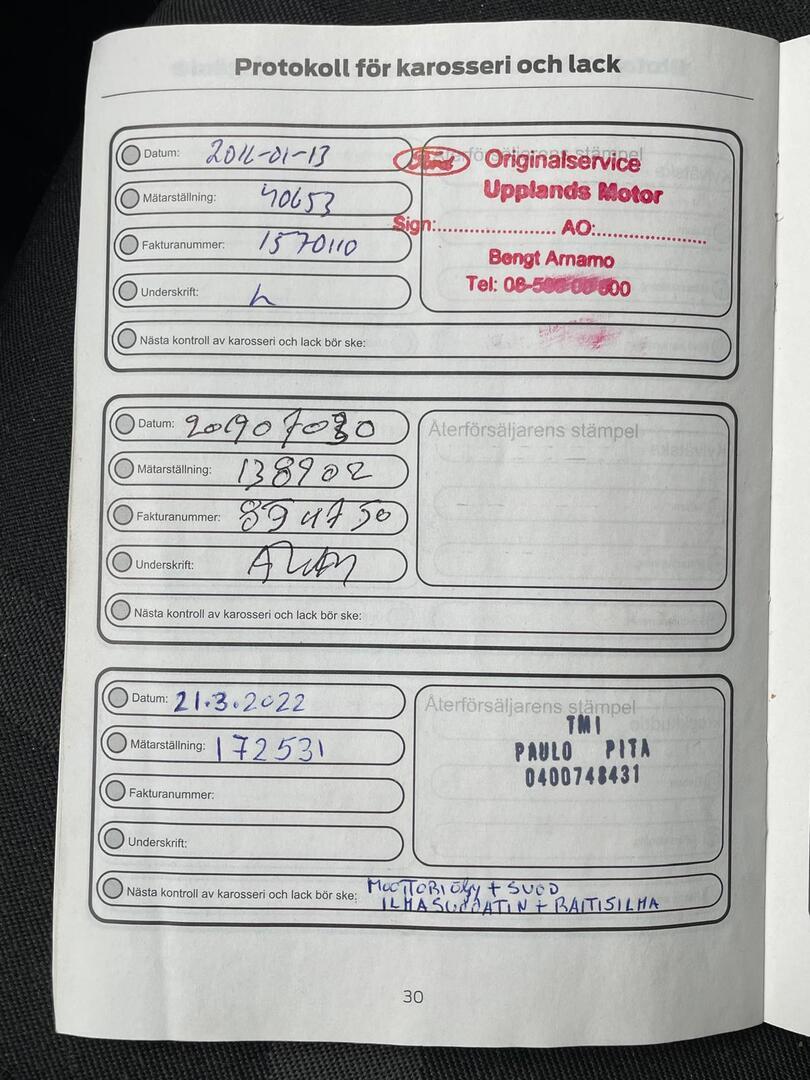 Protokoll för karosseri och lack
Datum: 2016-01-13
Mätarställning: 40653
Fakturanummer: 1570110
Underskrift:
Nästa kontroll av karosseri och lack bör ske:
Återförsäljarens stämpel
Ford Originalservice
Upplands Motor
Sign:...................... AO:......................
Bengt Arnamo
Tel: 08-
Datum: 20190730
Mätarställning: 138902
Fakturanummer:
Underskrift:
Nästa kontroll av karosseri och lack bör ske:
Återförsäljarens stämpel
Datum: 21.3.2022
Mätarställning: 172531
Fakturanummer:
Underskrift:
Nästa kontroll av karosseri och lack bör ske: MOOTTORIÖLJY + SUOD
ILMASUODATIN + RAITISILMA
Återförsäljarens stämpel
TMI
PAULO PITA
0400748431
30